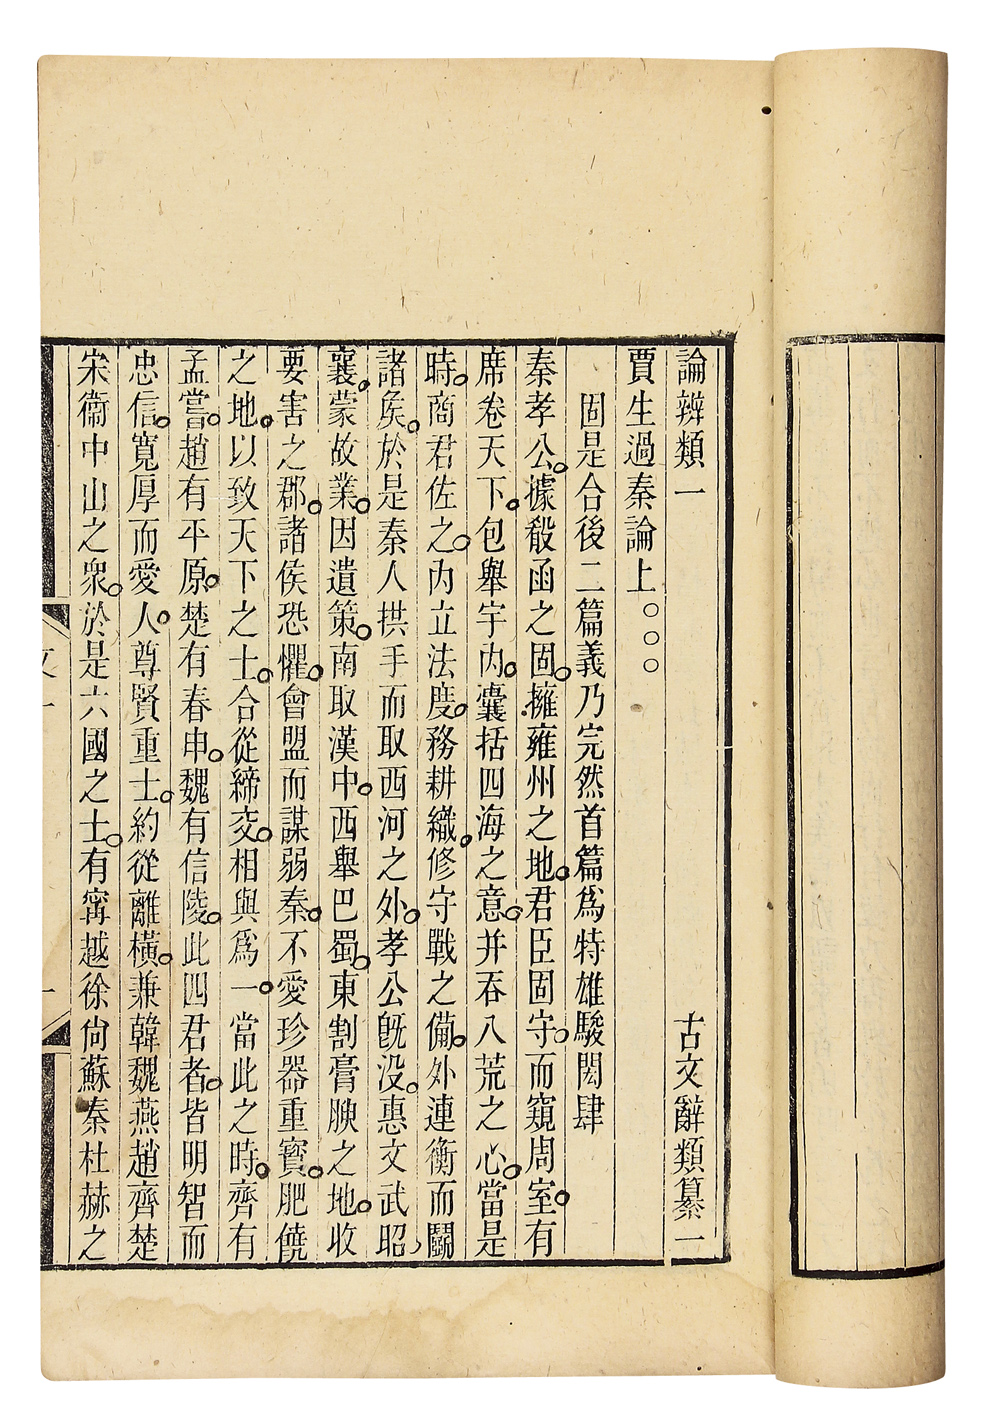 論辨類一　古文辭類纂一
賈生過秦論上○○○
固是合後二篇義乃完然首篇爲特雄駿閎肆
秦孝公據殽函之固擁雍州之地君臣固守而窺周室有
席卷天下包舉宇內囊括四海之意并吞八荒之心當是
時商君佐之內立法度務耕織修守戰之備外連衡而鬬
諸矦於是秦人拱手而取西河之外孝公旣没惠文武昭
襄蒙故業因遺策南取漢中西舉巴蜀東割膏腴之地收
要害之郡諸侯恐懼會盟而謀弱秦不愛珍器重寶肥饒
之地以致天下之士合從締交相與爲一當此之時齊有
孟嘗趙有平原楚有春申魏有信陵此四君者皆明智而
忠信寬厚而愛人尊賢重士約從離橫兼韓魏燕趙齊楚
宋衞中山之衆於是六國之士有甯越徐尙蘇秦杜赫之